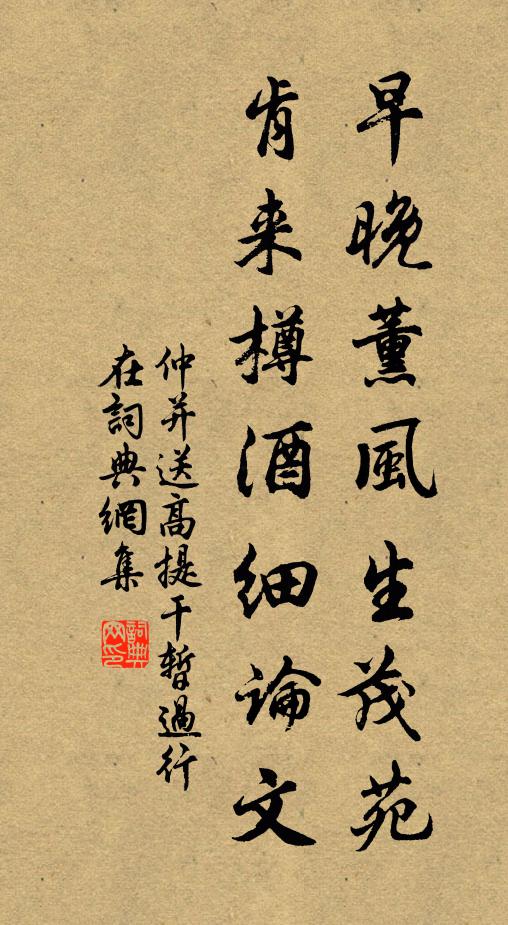 早晚薰風生茂苑
肯来樽酒細論文
仲并送高提干暫過行
在詞典網集
詞典网印